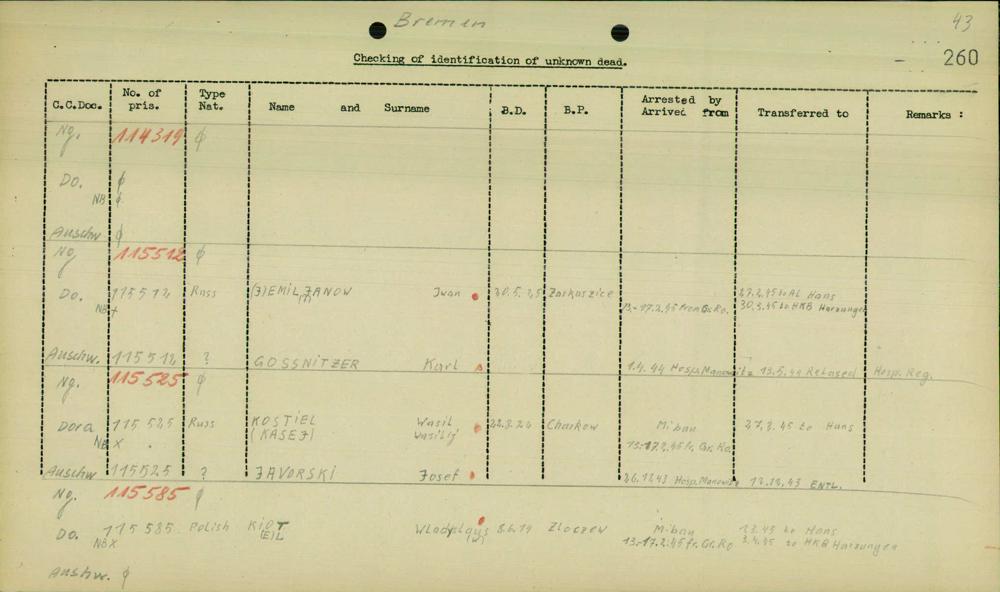 Bremen
43
260
Checking of identification of unknown dead.
C.C.Doc. No. of pris. Type Nat. Name and Surname B.D. B.P. Arrested by Arrived from Transferred to Remarks :
Ng. 114319 ϕ
Do. ϕ
NB ϕ
Auschw ϕ
Ng 115512 ϕ
Do. 115512 Russ (J)EMILJANOW Iwan 20.5.25 Zarkaszice 27.2.45 to AL Hans
NB + 13.-17.2.45 from Gr.Ro. 30.3.45 to HKB Harzungen
Auschw. 115512 ? GOSSNITZER Karl 1.4.44 Hosp. Manowitz 13.5.44 Relased Hosp. Reg.
Ng. 115525 ϕ
Dora 115525 Russ KOSTIEL Wasil 22.3.24 Charkow Mibau 27.3.45 to Hans
NB X (KASEJ) Wasilij 13-17.2.45 fr. Gr. Ro
Auschw 115525 ? JAVORSKI Josef 26.12.43 Hosp. Manowitz 12.12.43 ENTL.
Ng. 115585 ϕ
Do. 115585 Polish KIOT Wladyslaus 8.6.19 Zloczew Mibau 1.3.45 to Hans
NB X (E)L (W) 13.-17.2.45 fr. Gr. Ro 3.4.45 to HKB Harzungen
Auschw. ϕ